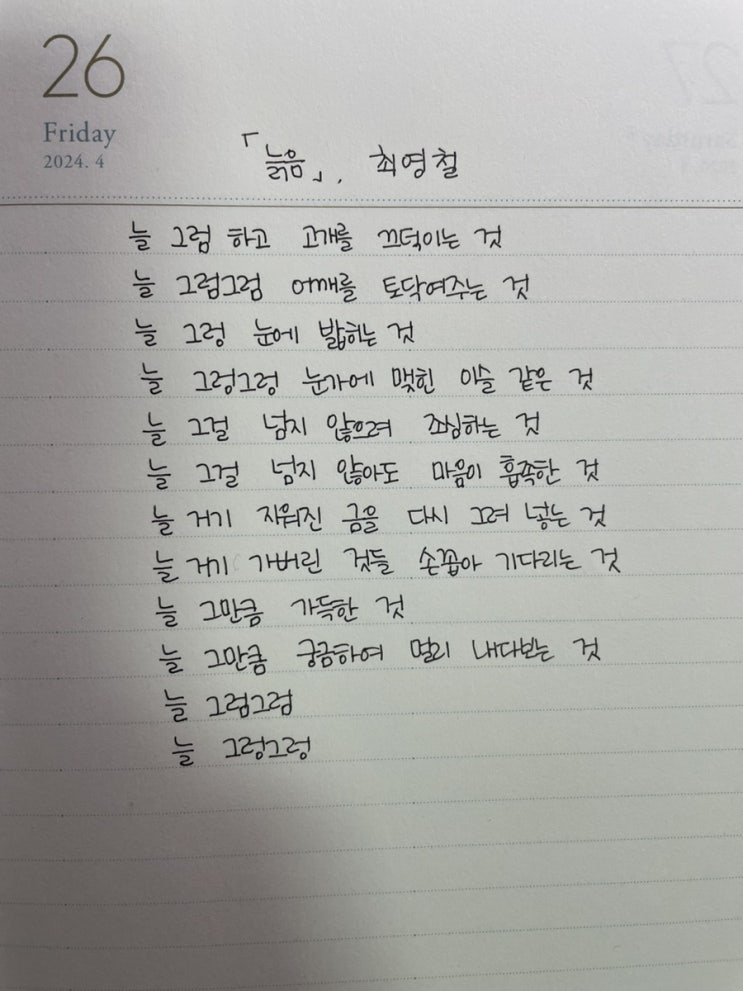 26
Friday
2024. 4
「늙음」, 최영철
늘 그럼 하고 고개를 끄덕이는 것
늘 그럼그럼 어깨를 토닥여주는 것
늘 그렁 눈에 밟히는 것
늘 그렁그렁 눈가에 맺힌 이슬 같은 것
늘 그걸 넘지 않으려 조심하는 것
늘 그걸 넘지 않아도 마음이 흡족한 것
늘 거기 지워진 금을 다시 그려 넣는 것
늘 거기 가버린 것들 손꼽아 기다리는 것
늘 그만큼 가득한 것
늘 그만큼 궁금하여 멀리 내다보는 것
늘 그럼그럼
늘 그렁그렁